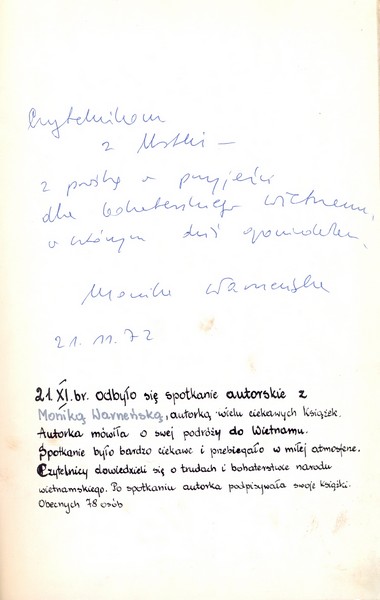 Czytelnikom
z Ustki —
z prośbą o przyjaźń
dla bohaterskiego Wietnamu,
o którym dziś opowiadałam.
Monika Warneńska
21.11.72
21.XI.br. odbyło się spotkanie autorskie z
Moniką Warneńską, autorką wielu ciekawych książek.
Autorka mówiła o swej podróży do Wietnamu.
Spotkanie było bardzo ciekawe i przebiegało w miłej atmosferze.
Czytelnicy dowiedzieli się o trudach i bohaterstwie narodu
wietnamskiego. Po spotkaniu autorka podpisywała swoje książki.
Obecnych 78 osób